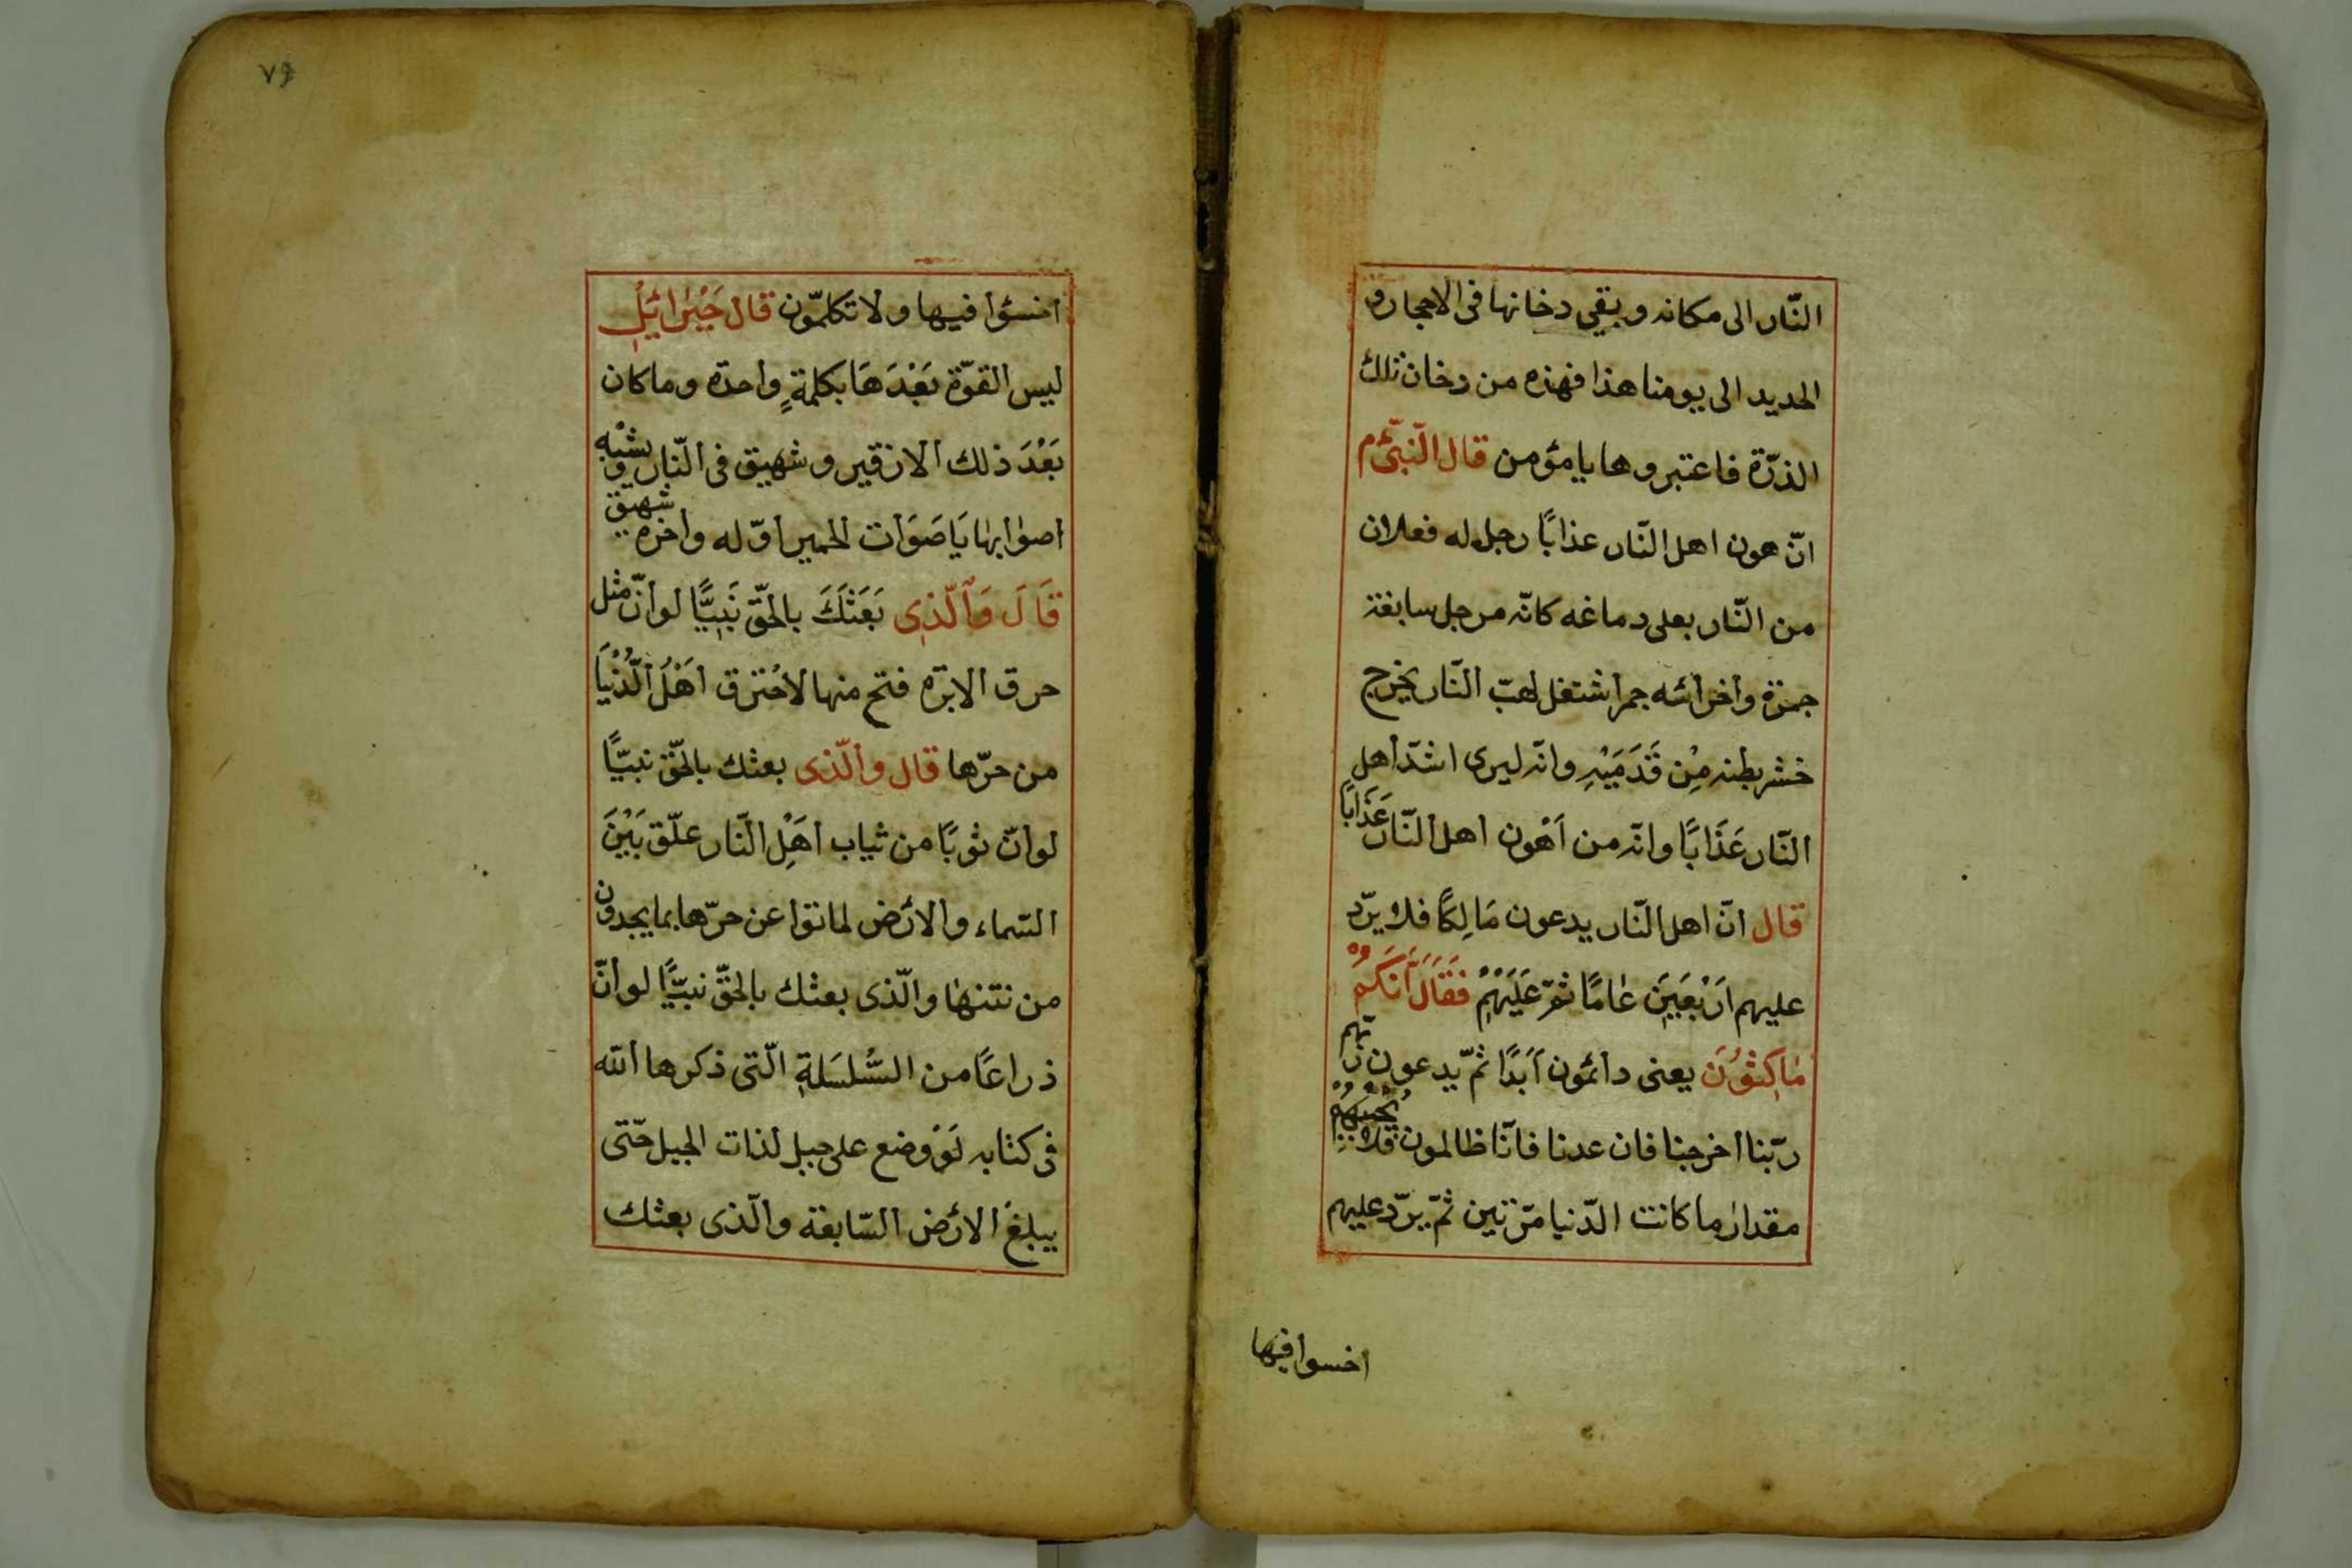 النّار الى مكانه و بقى دخانها فى الاحجار و
الحديد الى يومنا هذا فهذه من دخان تلك
الذرّة فاعتبروها يا مؤمن قال النّبىّ م
انّ هون اهل النّار عذابًا رجل له فعلان
من النّار بعلى دماغه كانّه مرجل سابغة
جمرة واخرائه جمر اشتغل لهبّ النّار يخرج
خشر بطنه مِنْ قَدَمَيْهِ وانّه ليرى اشدّ اهل
النّار عَذَابًا وانّه من اَهْون اهل النّار عَذَابًا
قال انّ اهل النّار يدعون مَالِكًا فلا يردّ
عليهم اَرْبَعِينَ عَامًا ثمّ عَلَيْهِمْ فَقَالَ اَنَّكُمْ
مَاكِثُونَ يعنى دائمون اَبَدًا ثمّ يدعون ربّهم
ربّنا اخرجنا فان عدنا فانّا ظالمون فلا يُجِيبُهُمْ
مقدار ما كانت الدّنيا مرّتين ثمّ يردّ عليهم
اخسوا فيها
٧٩
اخسؤا فيها ولا تكلّمون قال جَبْرَائيل
ليس القوّة بَعْدَهَا بكلمةٍ واحدة وما كان
بَعْدَ ذلك الا زقير و شهيق فى النّار و يشبْه
اصوابها يَا صَوَات الحمير اوّله واخره شهيق
قَالَ وَالَّذِى بَعَثَكَ بالحَقّ نَبِيًّا لو انّ مثل
حرق الابرة فتح منها لاحْترق اَهْلُ الدُّنْيَا
من حرّها قال والّذى بعثك بالحَقّ نبيًّا
لو انّ ثوبًا من ثياب اَهْلِ النّار علّق بَيْنَ
السّماء والارْض لماتوا عن حرّها بما يجدون
من نتنها والّذى بعثك بالحقّ نبيًّا لو انّ
ذراعًا من السّلسَلةِ الّتى ذكرها الله
فى كتابه لَوْ وضع على جبل لذات الجبل حتّى
يبلغ الارْض السّابعة والّذى بعثك